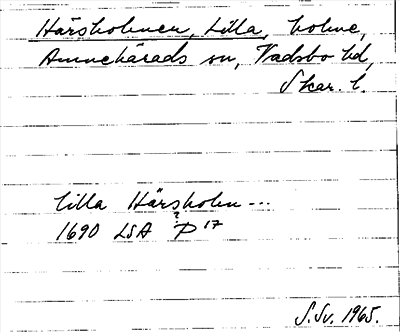 Härsholmen, Lilla, holme,
Amnehärads sn, Vadsbo hd,
Skar. l.
lilla Härsholm ---
?
1690 LSA P 17
S.Sv. 1965.